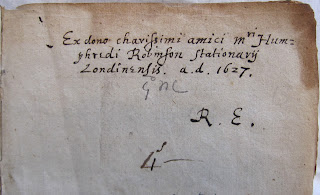 Ex dono charissimi amici mri Hum-
phredi Robinson stationarij
Londinensis. a.d. 1627.
R. E.